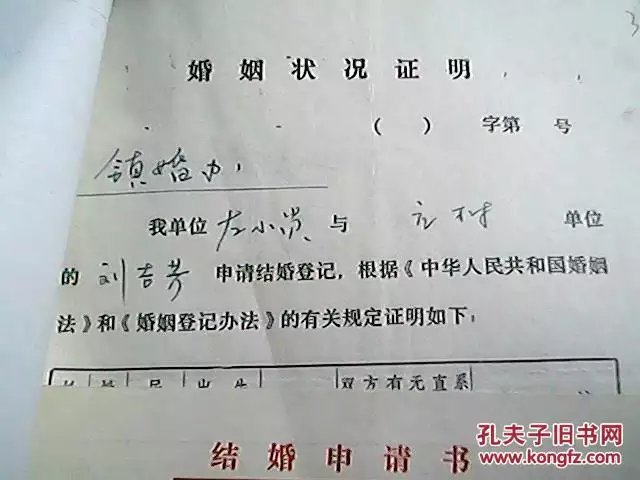 婚姻状况证明
( ) 字第 号
镇婚办:
我单位左小 与 单位
的 刘吉芳 申请结婚登记，根据《中华人民共和国婚姻
法》和《婚姻登记办法》的有关规定证明如下：
出生 双方有无直系
结婚申请书
孔夫子旧书网
www.kongfz.com